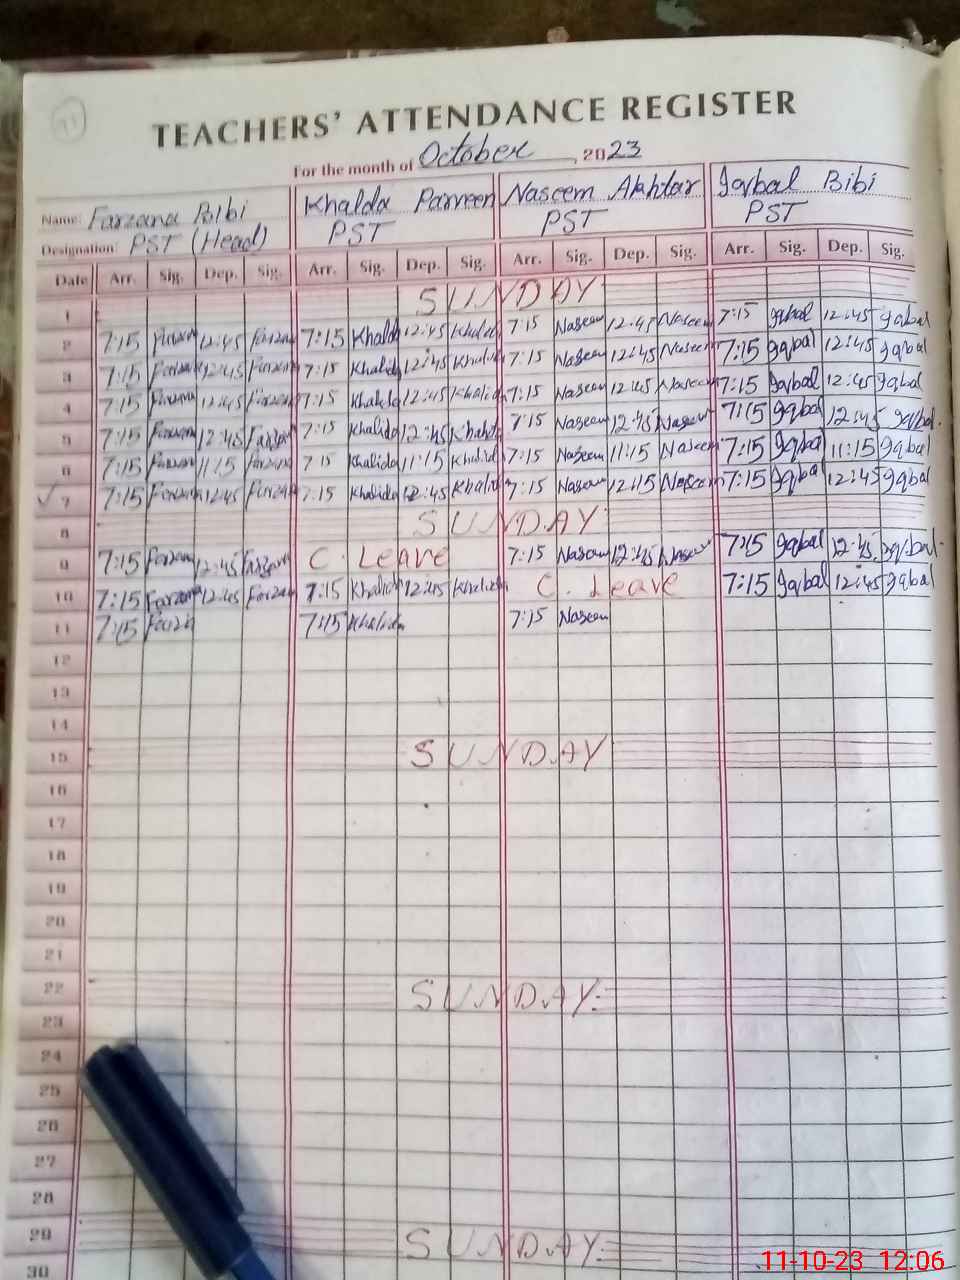 71
TEACHERS' ATTENDANCE REGISTER
For the month of October, 2023
Name: Farzana Bibi Khalda Parveen Naseem Akhtar Iqbal Bibi
Designation: PST (Head) PST PST PST
Date Arr. Sig. Dep. Sig. Arr. Sig. Dep. Sig. Arr. Sig. Dep. Sig. Arr. Sig. Dep. Sig.
1 SUNDAY
2 7:15 Farzana 12:45 Farzana 7:15 Khalida 12:45 Khalida 7:15 Naseem 12:45 Naseem 7:15 Iqbal 12:45 Iqbal
3 7:15 Farzana 12:45 Farzana 7:15 Khalida 12:45 Khalida 7:15 Naseem 12:45 Naseem 7:15 Iqbal 12:45 Iqbal
4 7:15 Farzana 12:45 Farzana 7:15 Khalida 12:45 Khalida 7:15 Naseem 12:45 Naseem 7:15 Iqbal 12:45 Iqbal
5 7:15 Farzana 12:45 Farzana 7:15 Khalida 12:45 Khalida 7:15 Naseem 12:45 Naseem 7:15 Iqbal 12:45 Iqbal
6 7:15 Farzana 11:15 Farzana 7:15 Khalida 11:15 Khalida 7:15 Naseem 11:15 Naseem 7:15 Iqbal 11:15 Iqbal
7 7:15 Farzana 12:45 Farzana 7:15 Khalida 12:45 Khalida 7:15 Naseem 12:15 Naseem 7:15 Iqbal 12:45 Iqbal
8 SUNDAY
9 7:15 Farzana 12:45 Farzana C. Leave 7:15 Naseem 12:45 Naseem 7:15 Iqbal 12:45 Iqbal
10 7:15 Farzana 12:45 Farzana 7:15 Khalida 12:45 Khalida C. Leave 7:15 Iqbal 12:45 Iqbal
11 7:15 Farzana 7:15 Khalida 7:15 Naseem
12
13
14
15 SUNDAY
16
17
18
19
20
21
22 SUNDAY
23
24
25
26
27
28
29 SUNDAY
30
11-10-23 12:06